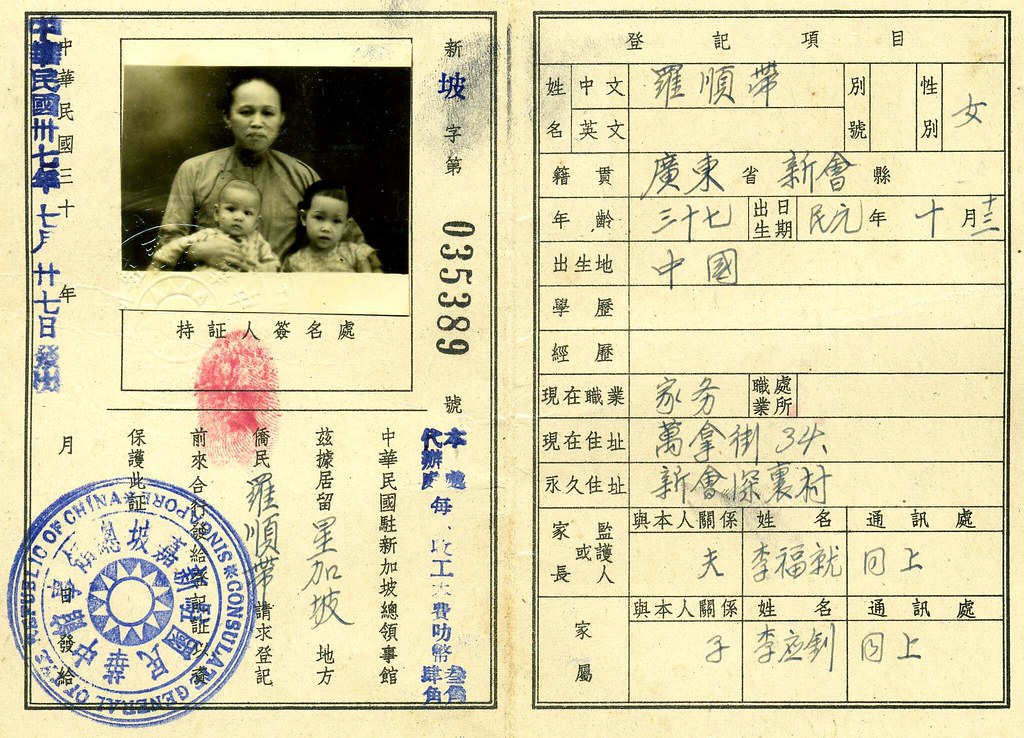 中華民國卅七年七月廿七日發出
中華民國三十 年 月 日發給
新坡字第 035389 號
持証人簽名處
中華民國駐新加坡總領事館
茲據居留星加坡地方
僑民羅順帶請求登記
前來合行發給登記証以資
保護此証
本處
代辦處
每
工
費叻幣
叁角
肆角
CONSULATE GENERAL OF THE REPUBLIC OF CHINA
SINGAPORE
中華民國駐新嘉坡總領事館
登記項目
姓名 中文 羅順帶 別號 性別 女
英文
籍貫 廣東省新會縣
年齡 三十七 出生日期 民元年十月十二
出生地 中國
學歷
經歷
現在職業 家务 職業處所
現在住址 萬拿街 34
永久住址 新會深裏村
家長或監護人 與本人關係 姓名 通訊處
夫 李福就 同上
家屬 與本人關係 姓名 通訊處
子 李應釗 同上